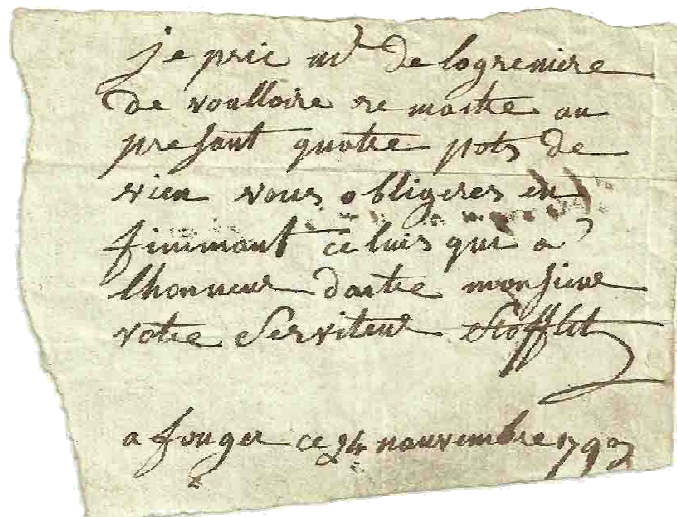 je prie mr de logreniere
de voulloire re maitre au
presant quatre pots de
vien vous obligeres en
finimant celuis qui a
lhonneur daitre monsieur
votre serviteur Stofflet
a fouger ce 24 nouvembre 1793